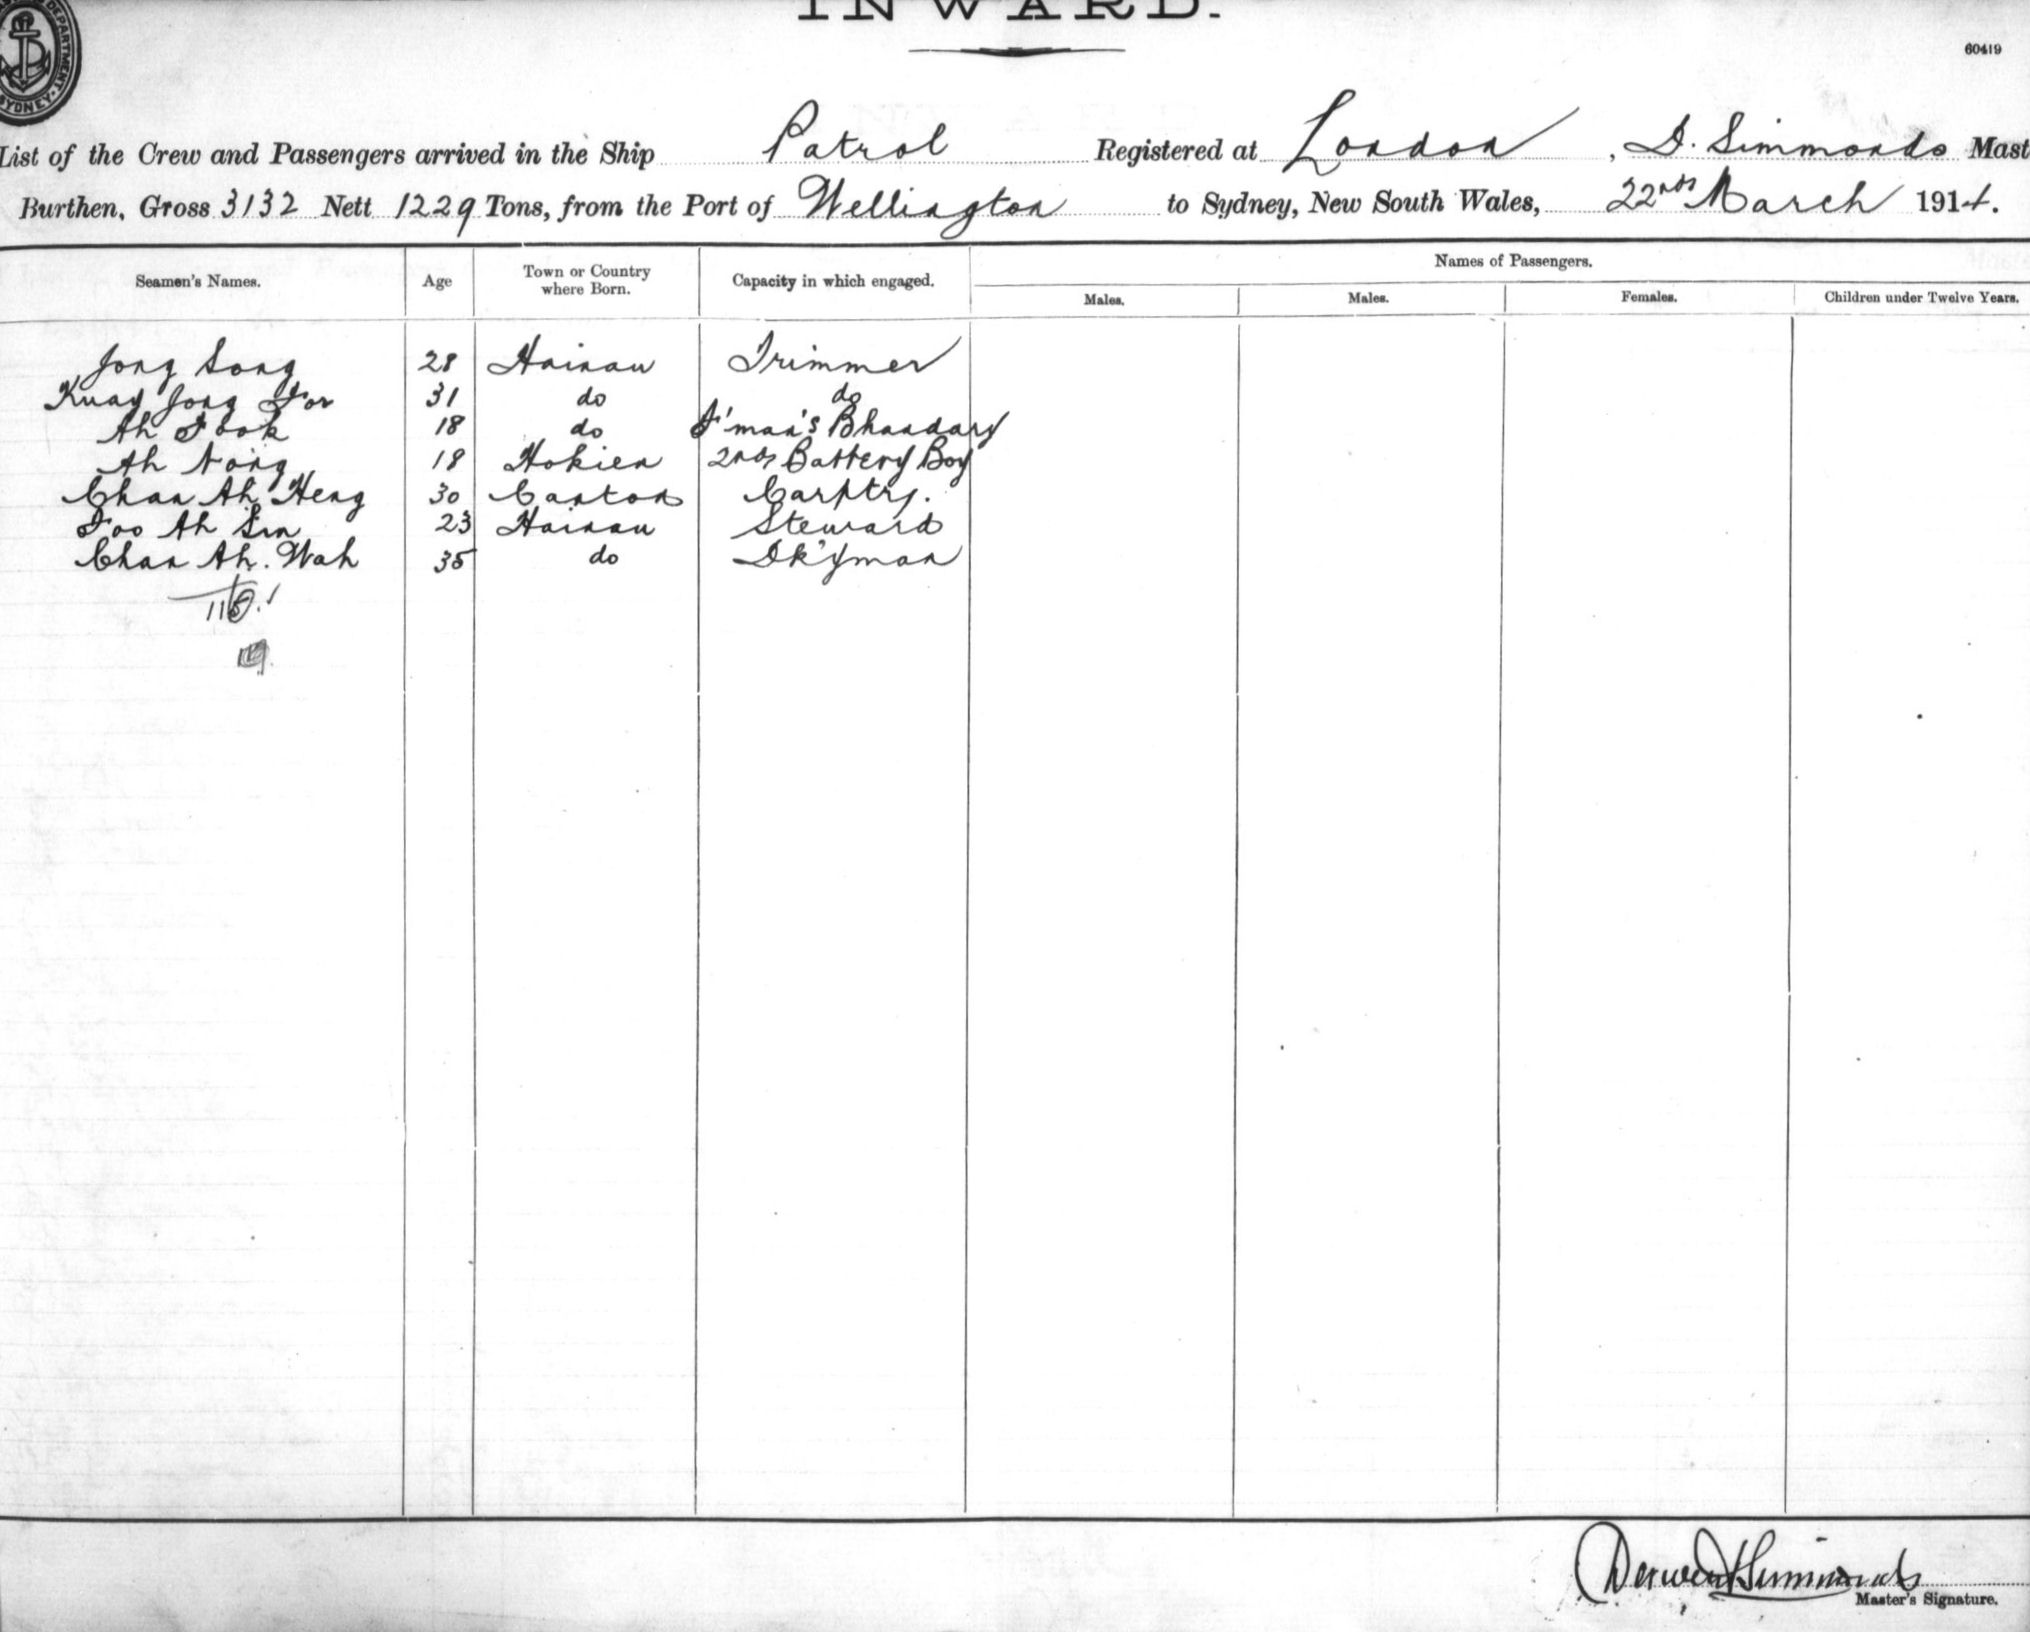 INWARD.
DEPARTMENT. SYDNEY.
60419
List of the Crew and Passengers arrived in the Ship Patrol Registered at London, D. Simmonds Mast
Burthen, Gross 3132 Nett 1229 Tons, from the Port of Wellington to Sydney, New South Wales, 22nd March 1914.
Seamen's Names. Age Town or Country where Born. Capacity in which engaged. Names of Passengers.
Males. Males. Females. Children under Twelve Years.
Jong Song 28 Hainan Trimmer
Kuay Jong For 31 do do
Ah Fook 18 do F'man's Bhandary
Ah Nong 18 Hokien 2nd Battery Boy
Chan Ah Heng 30 Canton Carptr.
Foo Ah Sin 23 Hainan Steward
Chan Ah. Wah 35 do Dk'yman
Simmonds
Master's Signature.